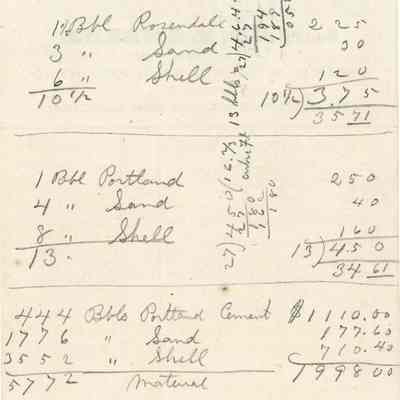 1½ Bbl Rosendale 2 25
3 " Sand 30
6 " Shell 1 20
10½ 10½) 3.75
35 71
1 Bbl Portland 2 50
4 " Sand 40
8 " Shell 1 60
13. 13) 4 5 0
34 61
27) 450 (16.7/3
27
180
162
180
444 Bbls Portland Cement $1110.00
1776 " Sand 177.60
3552 " Shell 710.40
5772 Material 1998 00